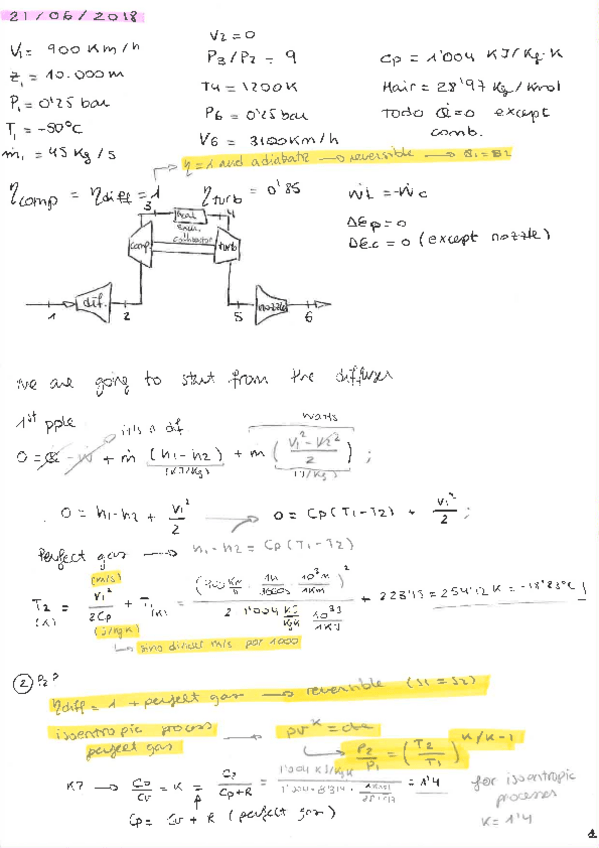 21/06/2018
V1= 900 Km/h
Z1 = 10.000m
P1 = 0'25 bar
T1 = -50°C
ṁ1 = 45 Kg/s
V2=0
P3/P2 = 9
T4 = 1200K
P6 = 0'25 bar
V6 = 3100Km/h
Cp = 1'004 KJ/Kg·K
Mair = 28'97 Kg/Kmol
Todo Q̇=0 except
comb.
η=1 and adiabatic → reversible → S1=S2
ηcomp = ηdiff = 1
ηturb = 0'85
Ẇt = -Ẇc
ΔEp=0
ΔEc = 0 (except nozzle)
3
4
comp
combustor
turb
dif.
nozzle
1
2
5
6
we are going to start from the diffuser
1st pple
it's a dif
watts
0 = Q̇ - Ẇ + ṁ (h1-h2) + ṁ (V1² - V2² / 2) ;
(KJ/Kg)
(J/Kg)
0 = h1-h2 + V1²/2 → 0 = Cp(T1-T2) + V1²/2 ;
Perfect gas → h1-h2 = Cp(T1-T2)
(m/s)
T2 = V1²/2Cp + T1(K) = (900 Km/h · 1h/3600s · 10³m/1Km)² / 2 · 1'004 KJ/KgK · 10³J/1KJ + 223'15 = 254'12 K = -18'83°C
(K)
(J/KgK)
→ sino dividir m/s por 1000
② P2?
ηdiff = 1 + perfect gas → reversible (S1 = S2)
isoentropic process
perfect gas
→ pv^K = cte
→ P2/P1 = (T2/T1)^K/K-1
K? → Cp/Cv = K = Cp/Cp+R = = 1'4
for isoentropic
processes
K = 1'4
Cp = Cv + R (perfect gas)
1